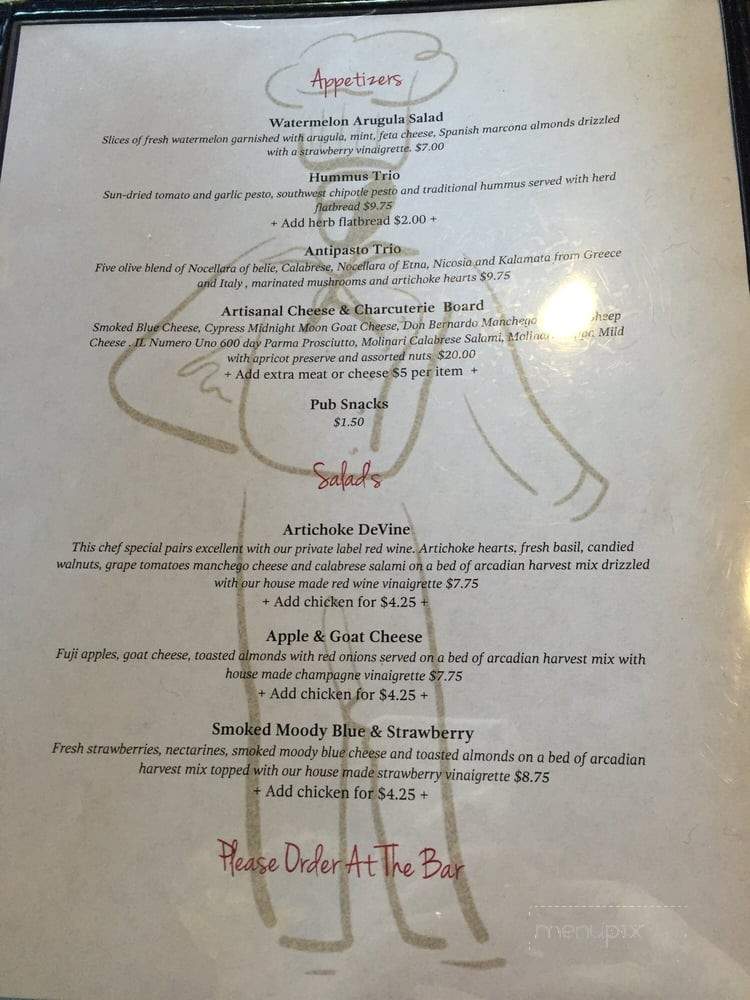 Appetizers
Watermelon Arugula Salad
Slices of fresh watermelon garnished with arugula, mint, feta cheese, Spanish marcona almonds drizzled
with a strawberry vinaigrette. $7.00
Hummus Trio
Sun-dried tomato and garlic pesto, southwest chipotle pesto and traditional hummus served with herd
flatbread $9.75
+ Add herb flatbread $2.00 +
Antipasto Trio
Five olive blend of Nocellara of belie, Calabrese, Nocellara of Etna, Nicosia and Kalamata from Greece
and Italy , marinated mushrooms and artichoke hearts $9.75
Artisanal Cheese & Charcuterie Board
Smoked Blue Cheese, Cypress Midnight Moon Goat Cheese, Don Bernardo Manchego
Cheese . IL Numero Uno 600 day Parma Prosciutto, Molinari Calabrese Salami, Mild
with apricot preserve and assorted nuts $20.00
+ Add extra meat or cheese $5 per item +
Pub Snacks
$1.50
Salads
Artichoke DeVine
This chef special pairs excellent with our private label red wine. Artichoke hearts, fresh basil, candied
walnuts, grape tomatoes manchego cheese and calabrese salami on a bed of arcadian harvest mix drizzled
with our house made red wine vinaigrette $7.75
+ Add chicken for $4.25 +
Apple & Goat Cheese
Fuji apples, goat cheese, toasted almonds with red onions served on a bed of arcadian harvest mix with
house made champagne vinaigrette $7.75
+ Add chicken for $4.25 +
Smoked Moody Blue & Strawberry
Fresh strawberries, nectarines, smoked moody blue cheese and toasted almonds on a bed of arcadian
harvest mix topped with our house made strawberry vinaigrette $8.75
+ Add chicken for $4.25 +
Please Order At The Bar
menupix